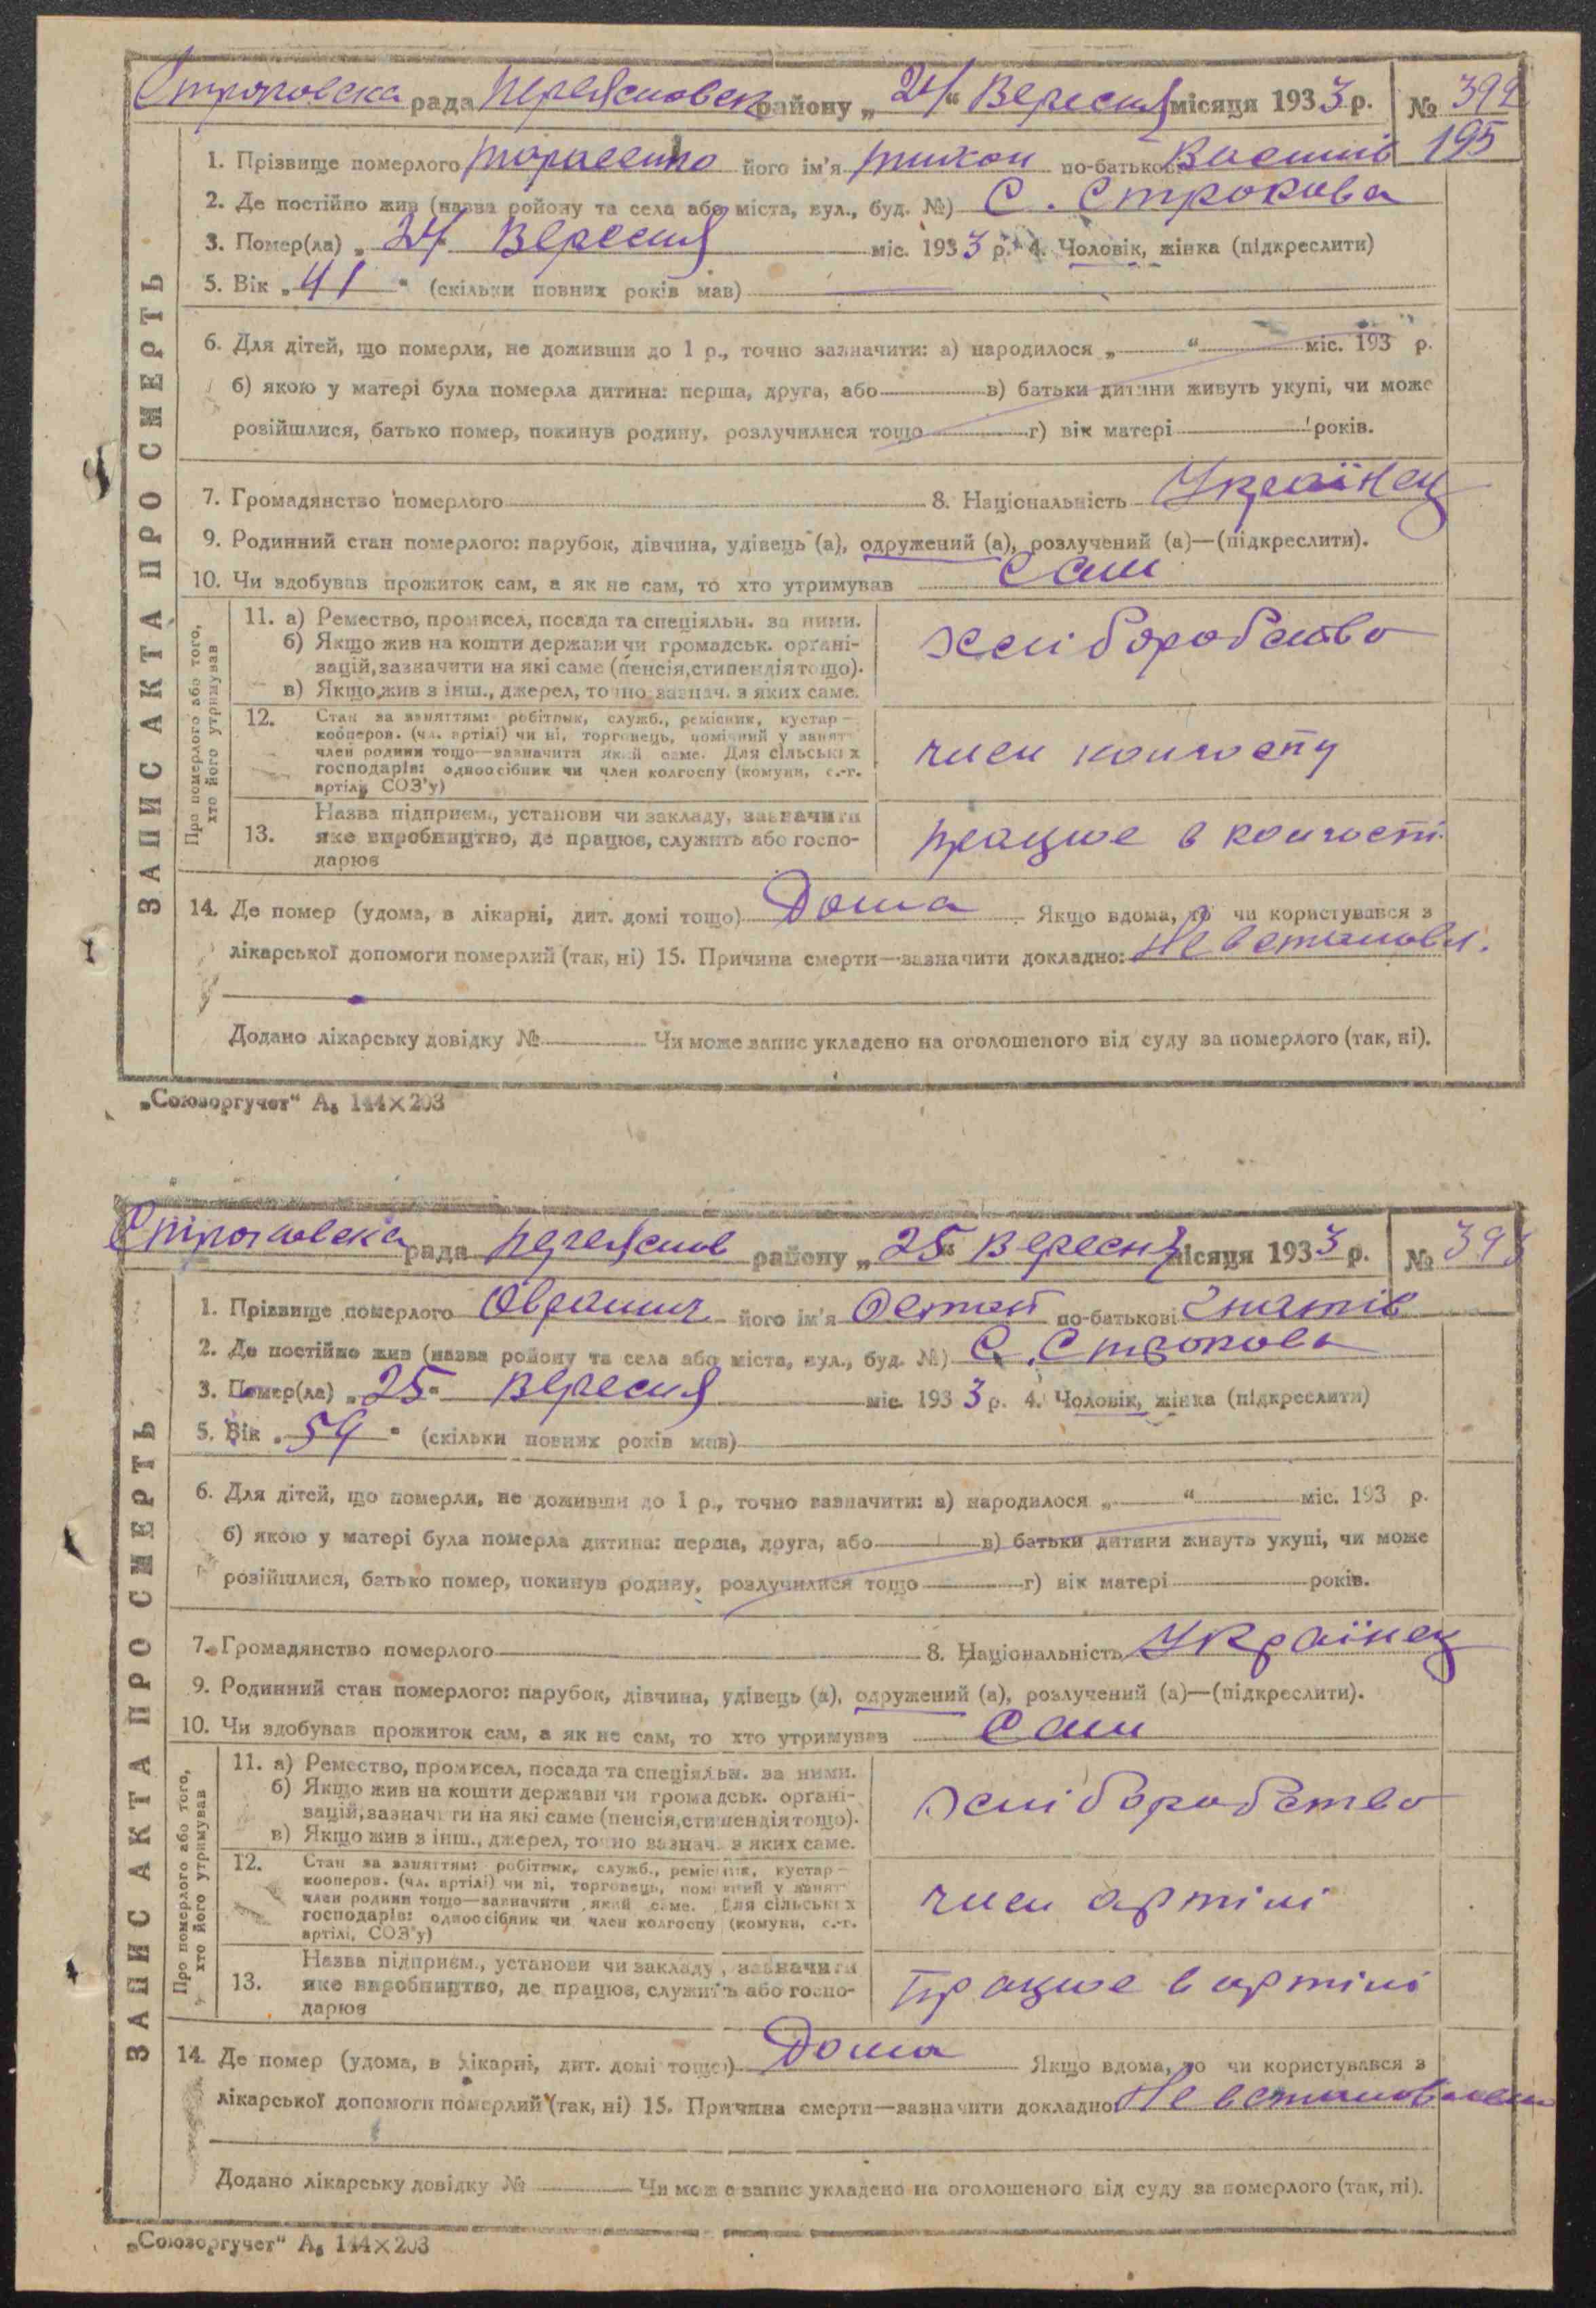 Строковска рада Переяславск району „24“ Вересня місяця 1933 р. № 392
195
1. Прізвище померлого Тарасенко його ім'я Тихон по-батькові Василів
2. Де постійно жив (назва району та села або міста, вул., буд. №) С. Строкова
3. Помер(ла) „24“ Вересня міс. 1933 р. 4. Чоловік, жінка (підкреслити)
5. Вік „41“ (скільки повних років мав)
6. Для дітей, що померли, не доживши до 1 р., точно зазначити: а) народилося „ “ міс. 193 р.
б) якою у матері була померла дитина: перша, друга, або в) батьки дитини живуть укупі, чи може
розійшлися, батько помер, покинув родину, розлучилися тощо г) вік матері років.
7. Громадянство померлого 8. Національність Українец
9. Родинний стан померлого: парубок, дівчина, удівець (а), одружений (а), розлучений (а)—(підкреслити).
10. Чи здобував прожиток сам, а як не сам, то хто утримував Сам
ЗАПИС АКТА ПРО СМЕРТЬ
Про померлого або того, хто його утримував
11. а) Ремество, промисел, посада та спеціяльн. за ними.
б) Якщо жив на кошти держави чи громадськ. органі-
зацій, зазначити на які саме (пенсія, стипендія тощо).
в) Якщо жив з інш., джерел, точно зазнач. з яких саме.
хліборобство
12. Стан за заняттям: робітник, служб., ремісник, кустар—
кооперов. (чл. артілі) чи ні, торговець, помічний у занят
член родини тощо—зазначити який саме. Для сільських
господарів: одноосібник чи член колгоспу (комуни, с.-г.
артілі, СОЗ'у)
член колгоспу
13. Назва підприєм., установи чи закладу, зазначити
яке виробництво, де працює, служить або госпо-
дарює
працює в колгоспі
14. Де помер (удома, в лікарні, дит. домі тощо) Дома Якщо вдома, то чи користувався з
лікарської допомоги померлий (так, ні) 15. Причина смерти—зазначити докладно: Не встановл.
Додано лікарську довідку № Чи може запис укладено на оголошеного від суду за померлого (так, ні).
„Союзоргучет“ А₅ 144×203
Строковска рада Переяслов району „25“ Вересня місяця 1933 р. № 393
1. Прізвище померлого його ім'я по-батькові
2. Де постійно жив (назва району та села або міста, вул., буд. №) С. Строкова
3. Помер(ла) „25“ Вересня міс. 1933 р. 4. Чоловік, жінка (підкреслити)
5. Вік „54“ (скільки повних років мав)
6. Для дітей, що померли, не доживши до 1 р., точно зазначити: а) народилося „ “ міс. 193 р.
б) якою у матері була померла дитина: перша, друга, або в) батьки дитини живуть укупі, чи може
розійшлися, батько помер, покинув родину, розлучилися тощо г) вік матері років.
7. Громадянство померлого 8. Національність Українец
9. Родинний стан померлого: парубок, дівчина, удівець (а), одружений (а), розлучений (а)—(підкреслити).
10. Чи здобував прожиток сам, а як не сам, то хто утримував Сам
ЗАПИС АКТА ПРО СМЕРТЬ
Про померлого або того, хто його утримував
11. а) Ремество, промисел, посада та спеціяльн. за ними.
б) Якщо жив на кошти держави чи громадськ. органі-
зацій, зазначити на які саме (пенсія, стипендія тощо).
в) Якщо жив з інш., джерел, точно зазнач. з яких саме.
хліборобство
12. Стан за заняттям: робітник, служб., ремісник, кустар—
кооперов. (чл. артілі) чи ні, торговець, помічний у занят
член родини тощо—зазначити який саме. Для сільських
господарів: одноосібник чи член колгоспу (комуни, с.-г.
артілі, СОЗ'у)
член артілі
13. Назва підприєм., установи чи закладу, зазначити
яке виробництво, де працює, служить або госпо-
дарює
працює в артілі
14. Де помер (удома, в лікарні, дит. домі тощо) Дома Якщо вдома, то чи користувався з
лікарської допомоги померлий (так, ні) 15. Причина смерти—зазначити докладно Не встановлен
Додано лікарську довідку № Чи може запис укладено на оголошеного від суду за померлого (так, ні).
„Союзоргучет“ А₅ 144×203